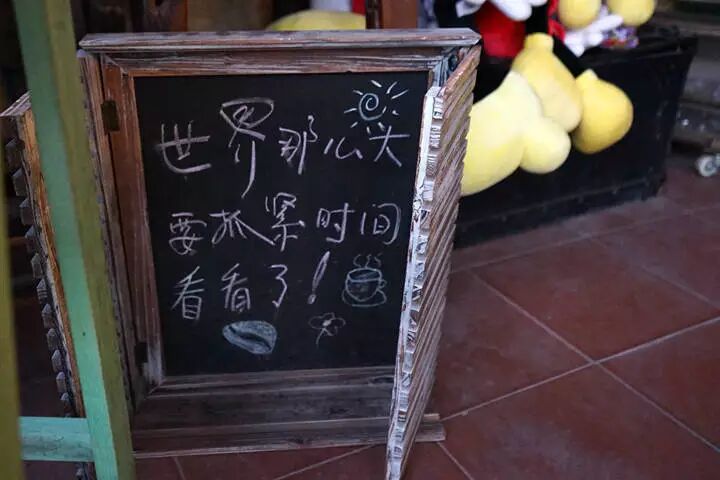 世界那么大
要抓紧时间
看看了!